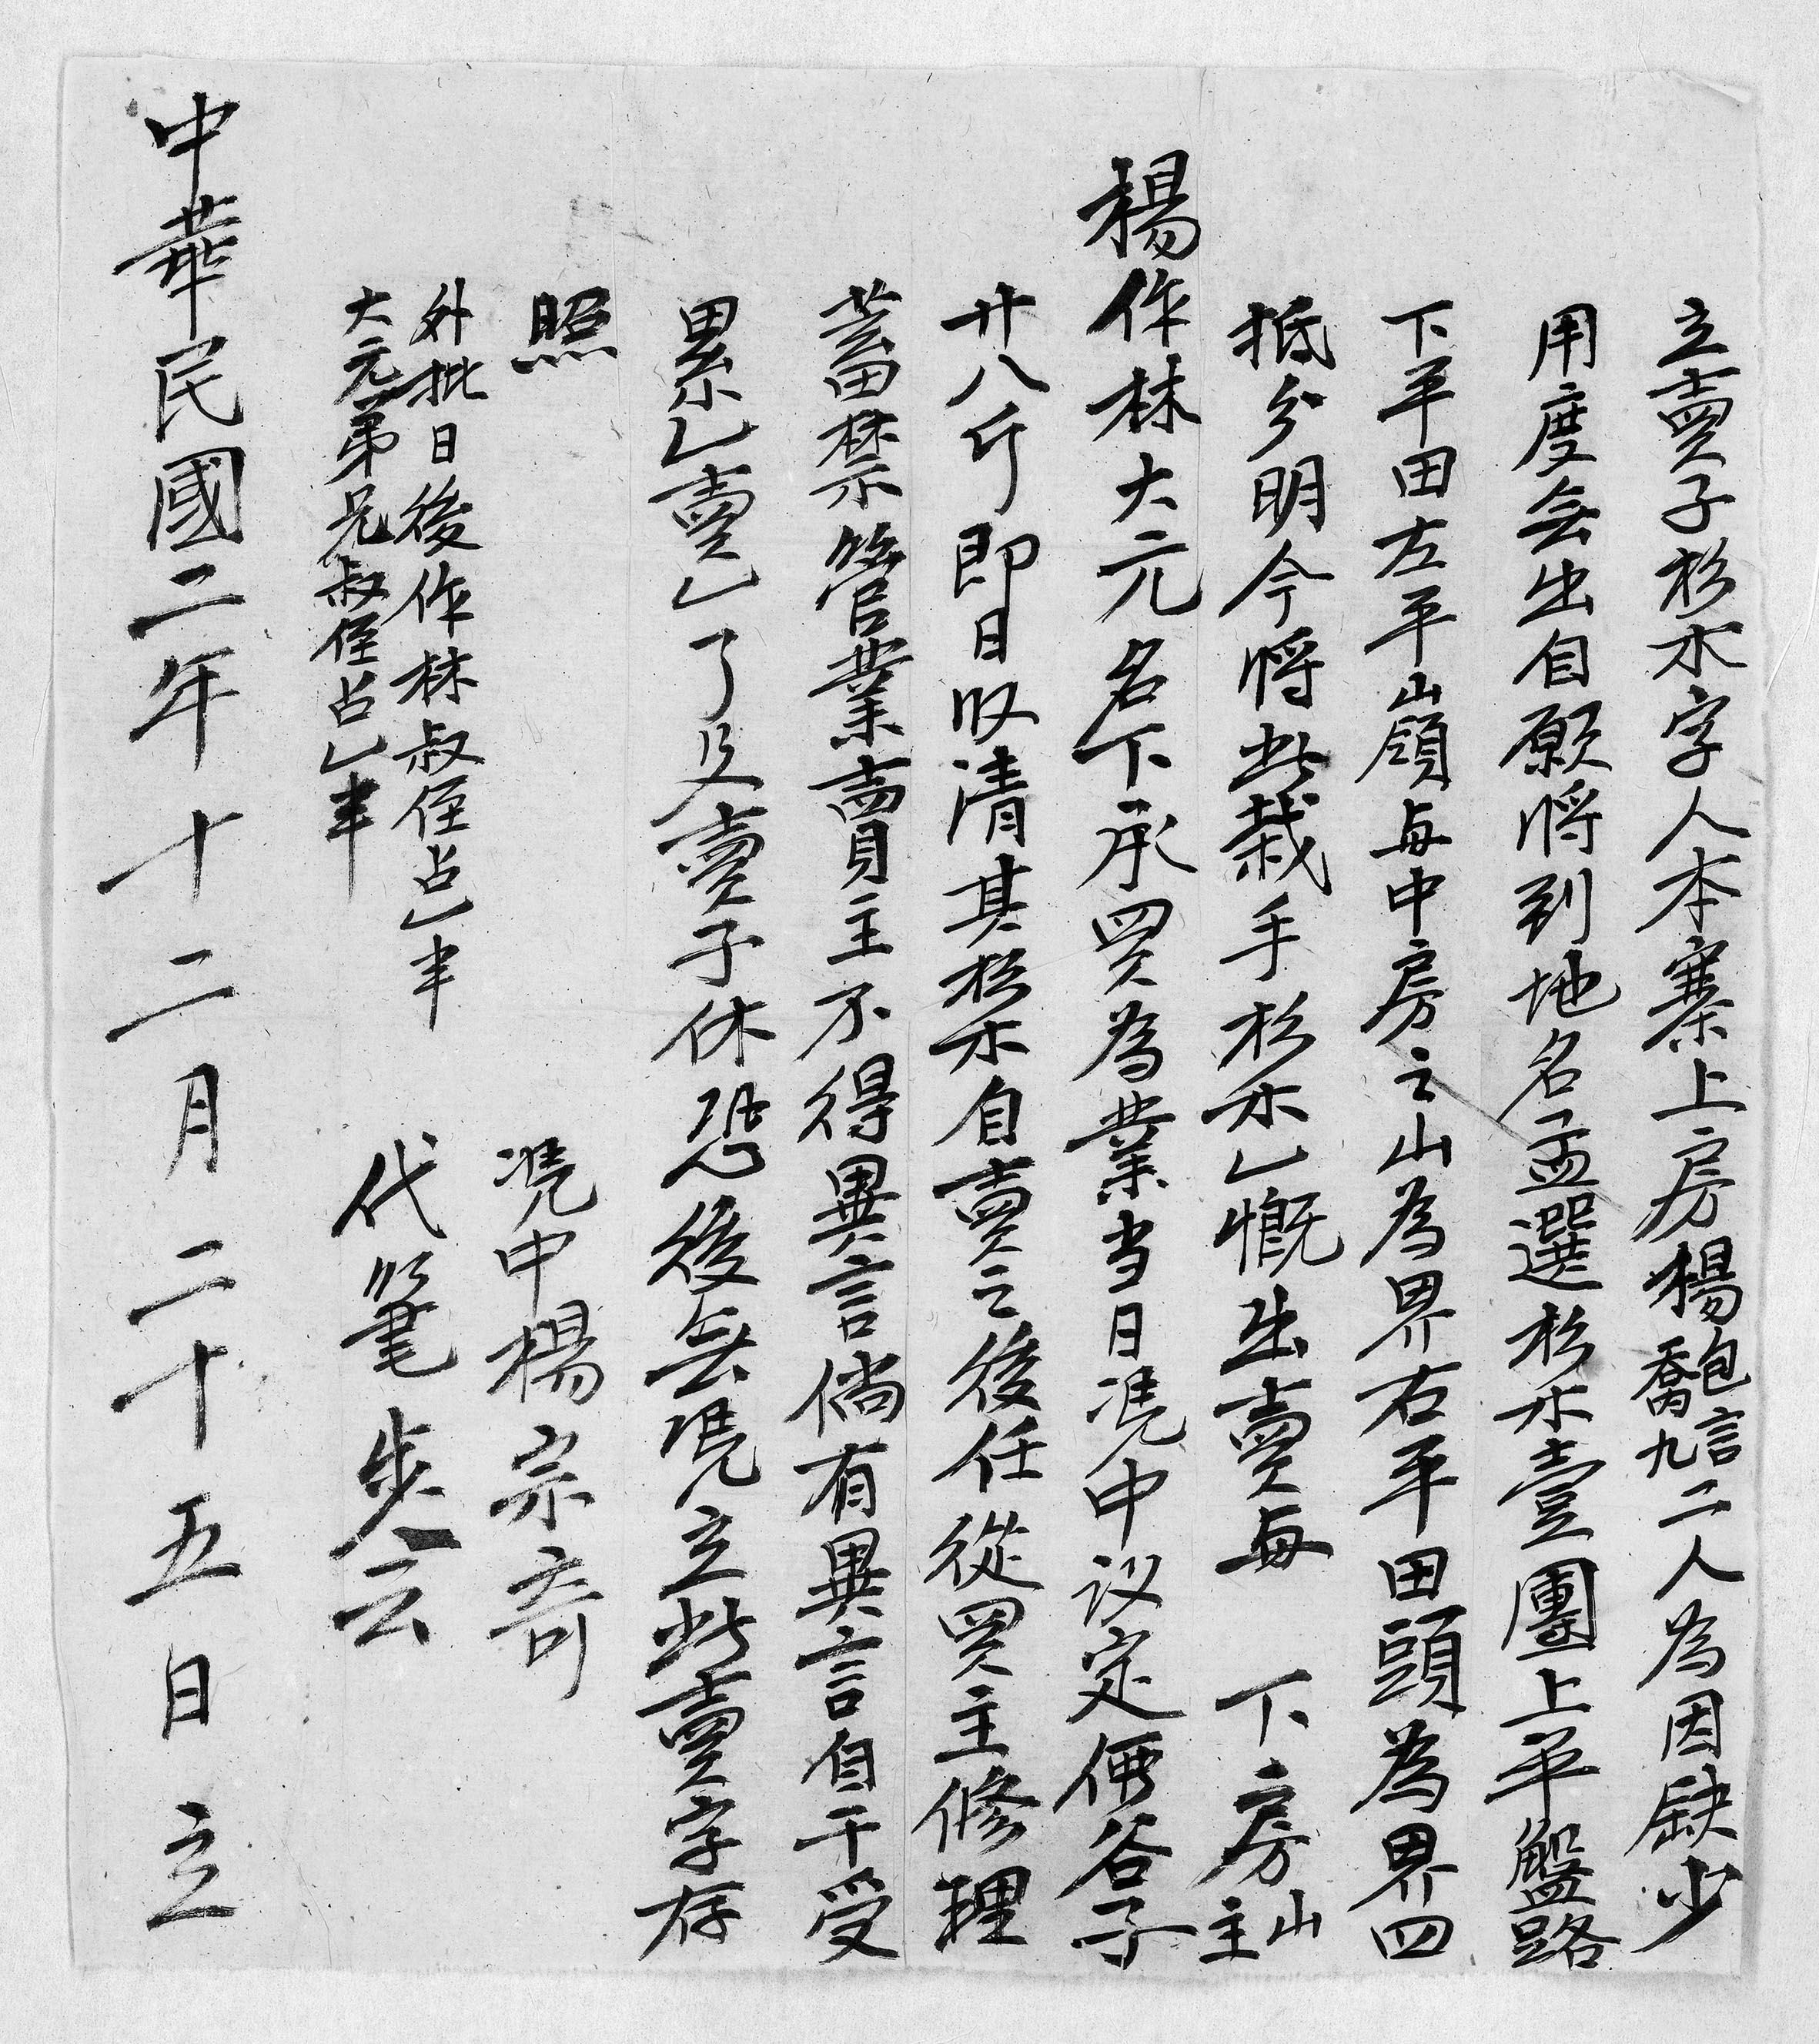 立賣子杉木字人本寨上房楊包言喬九二人為因缺少
用度無出自愿將到地名孟選杉木壹團上平盤路
下平田左平山嶺每中房之山為界右平田頭為界四
抵分明今將此栽手杉木乚慨出賣每 下房山主
楊作林大元名下承買為業当日凴中议定価谷子
廿八斤即日収清其杉木自賣之後任從買主修理
蓄禁管業賣主不得異言倘有異言自干受
累乚賣乚了父賣子休恐後無凴立此賣字存
照
外批日後作林叔侄占乚半
大元弟兄叔侄占乚半
凴中楊宗奇
代筆步云
中華民國二年十二月二十五日立